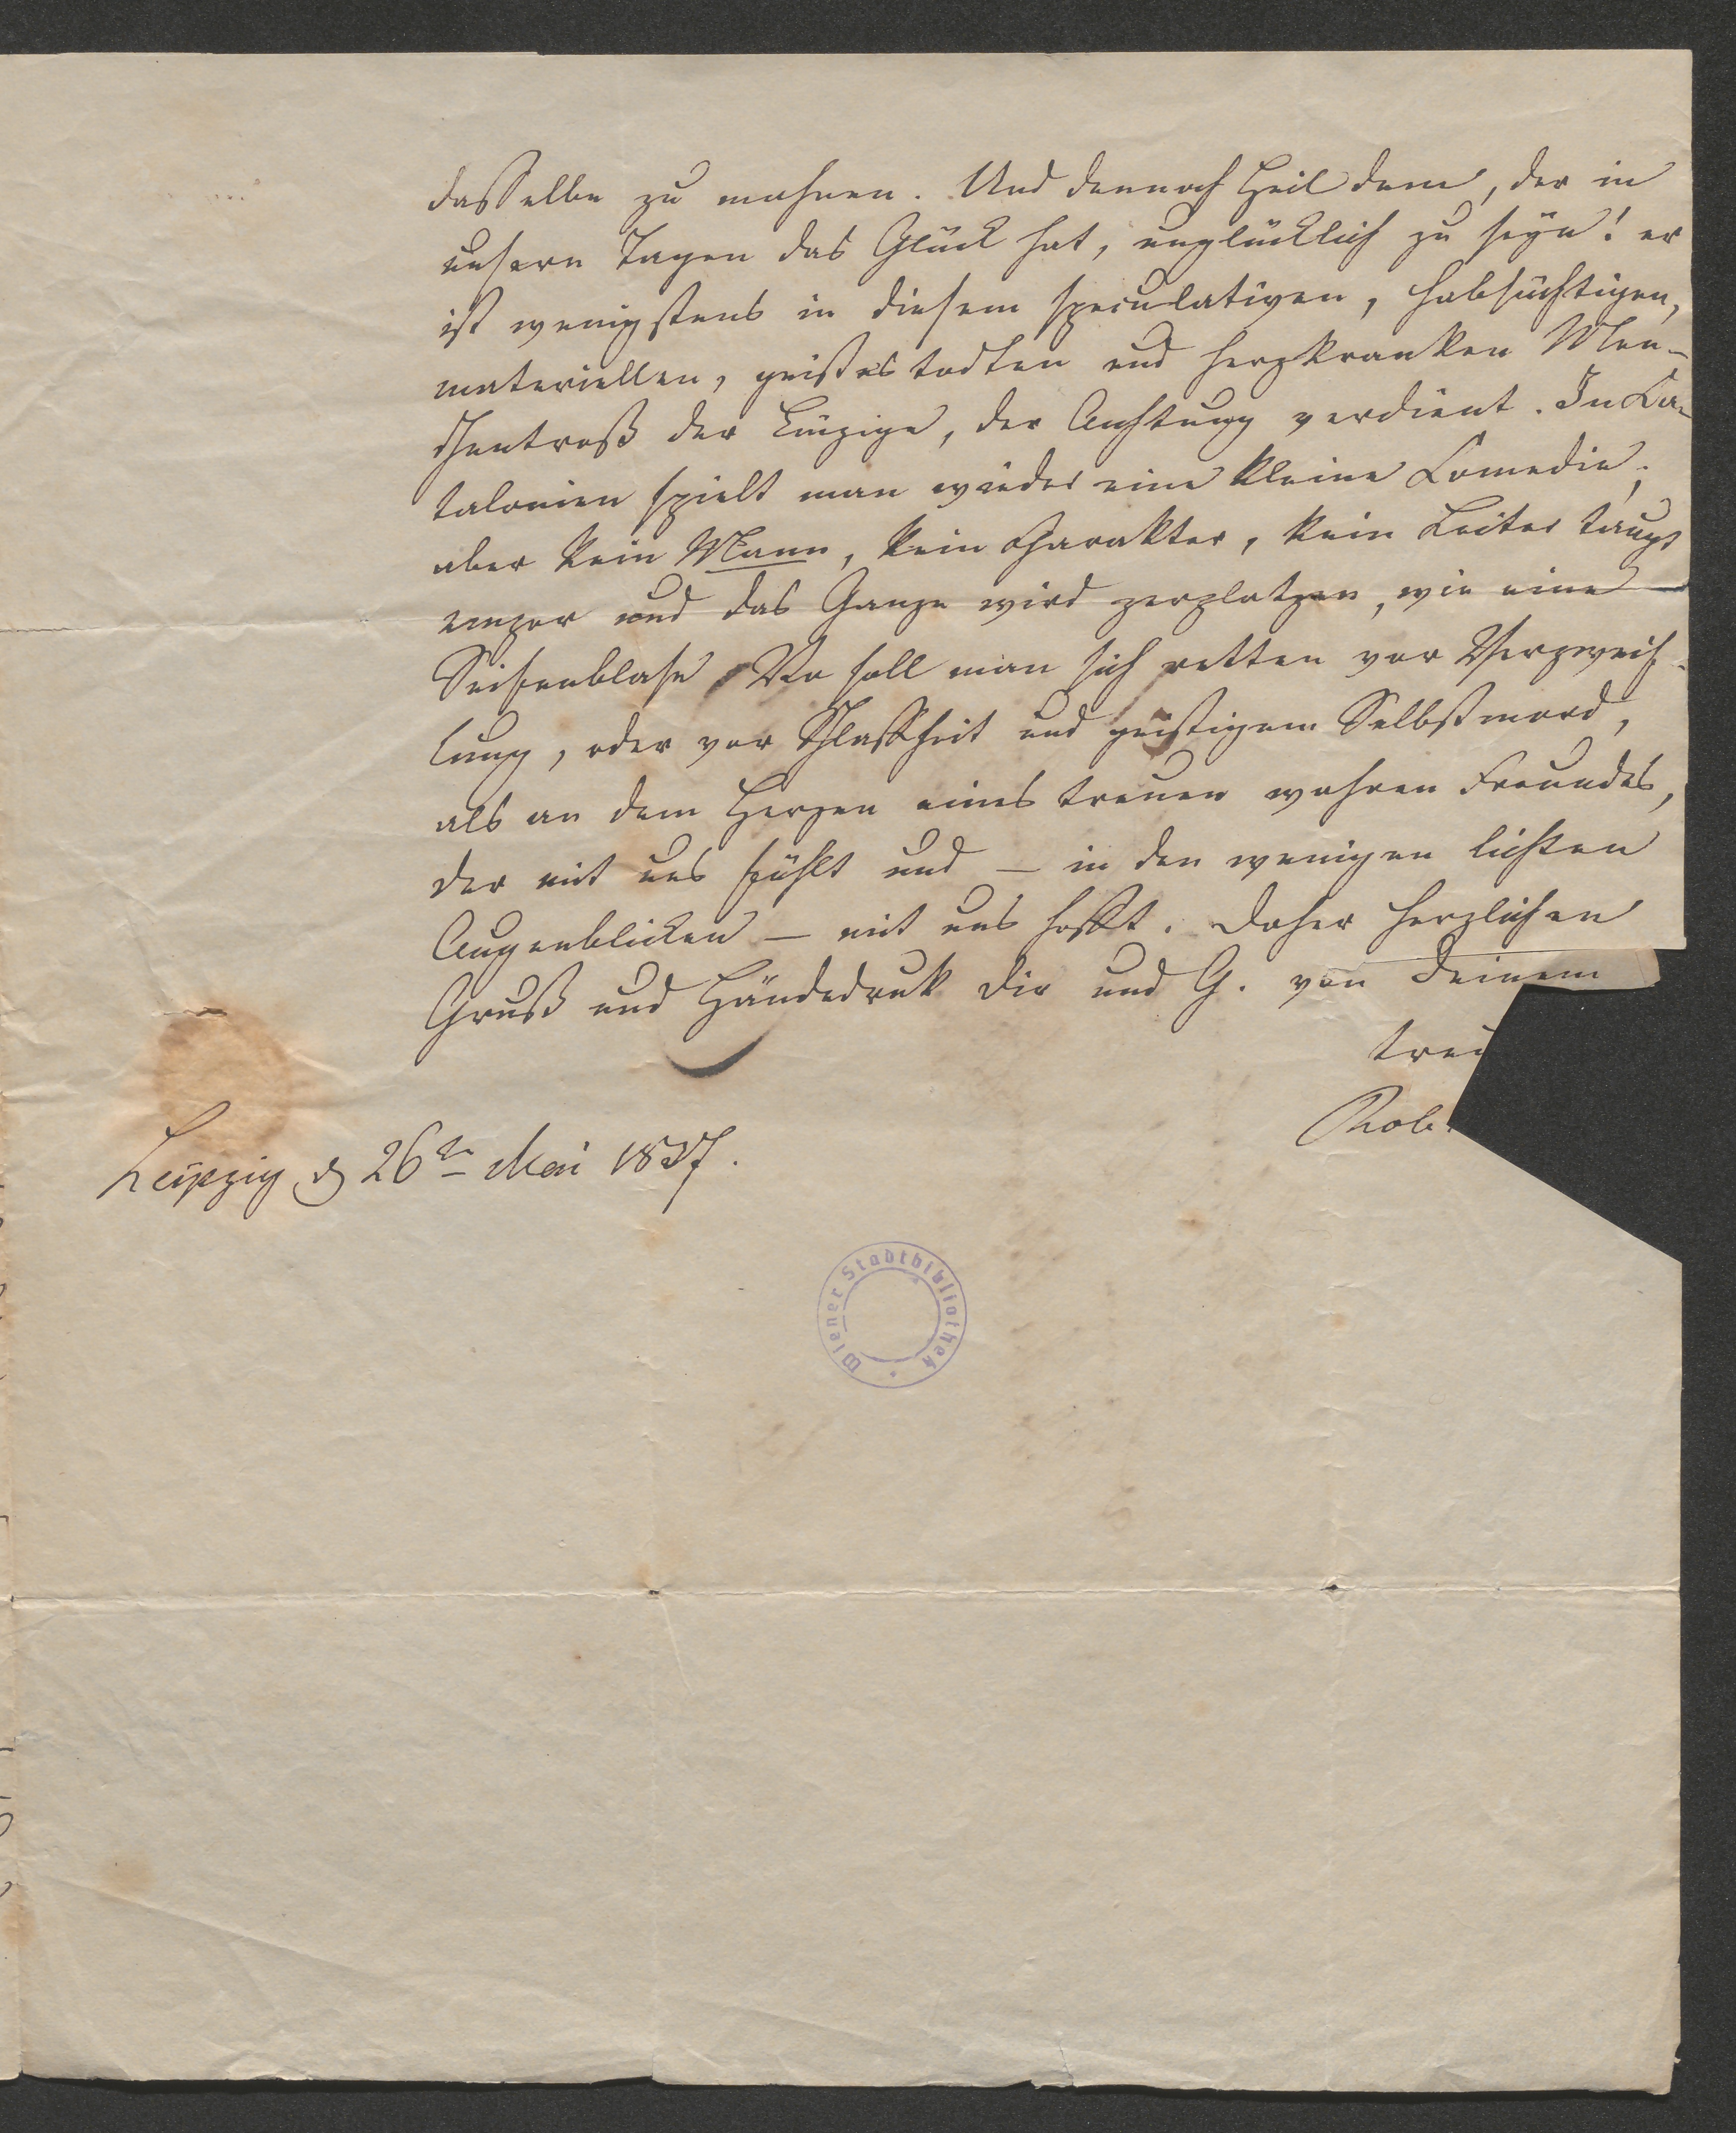 dasselbe zu mahnen. Und dennoch Heil dem, der in
unsern Tagen das Glück hat, unglücklich zu seyn! er
ist wenigstens in diesem speculativen, habsüchtigen,
materiellen, geistestodten und herzkranken Men-
schentroß der Einzige, der Achtung verdient. In Ca-
talonien spielt man wieder eine kleine Comedie;
aber kein Mann, kein Charakter, kein Leiter taugt
empor und das Ganze wird zerplatzen, wie eine
Seifenblase. Wo soll man sich retten vor Verzweif-
lung, oder vor Schlaffheit und geistigem Selbstmord,
als an dem Herzen eines treuen wahren Freundes,
der mit uns fühlt und – in den wenigen lichten
Augenblicken – mit uns hofft. Daher herzlichen
Gruß und Händedruk Dir und G. von Deinem
treu
Rob
Leipzig d 26tn Mai 1837.
Wiener Stadtbibliothek